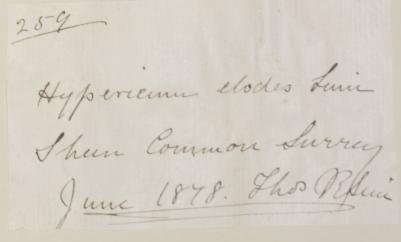 259
Hypericum elodes Linn
Sheen Common Surrey
June 1878. Thos R Sim